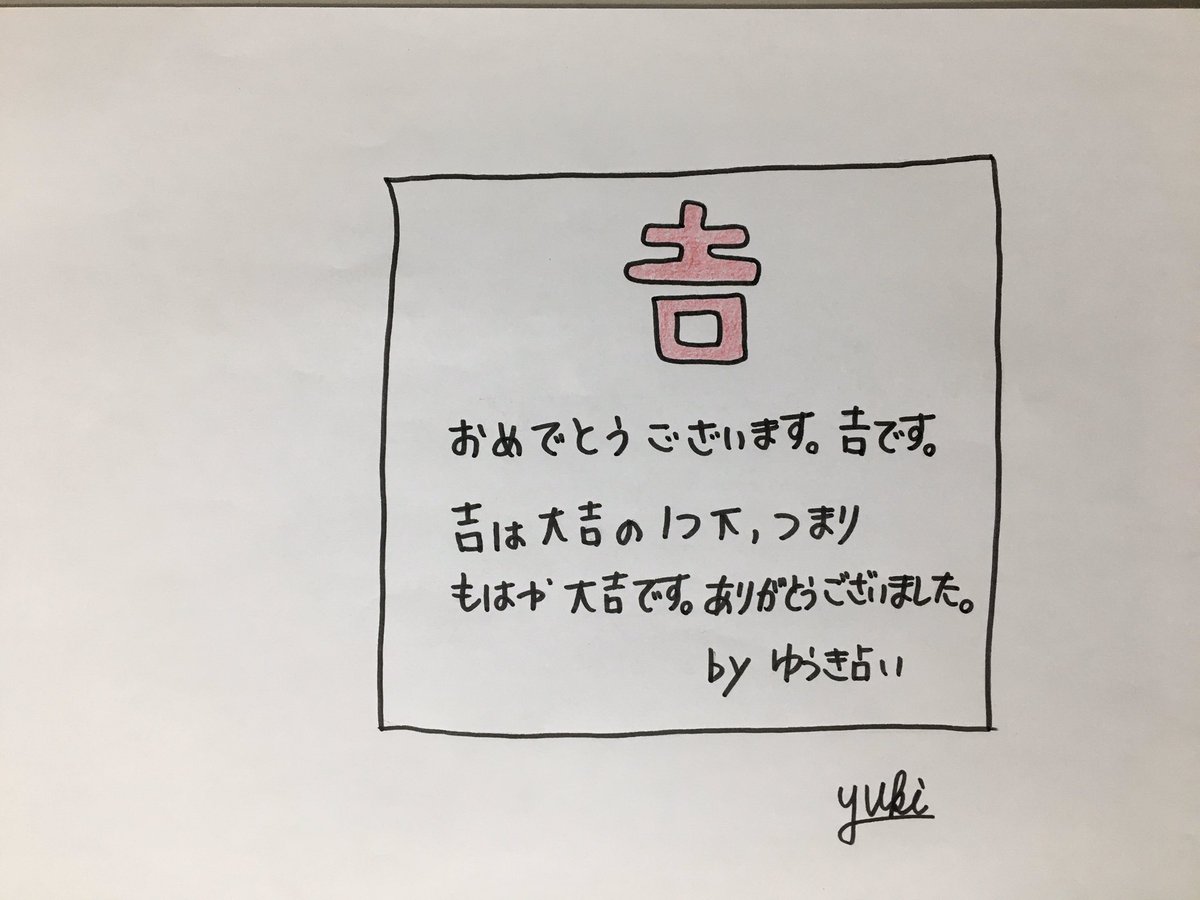 吉
おめでとうございます。吉です。
吉は大吉の1つ下,つまり
もはや大吉です。ありがとうございました。
by ゆうき占い
yuki